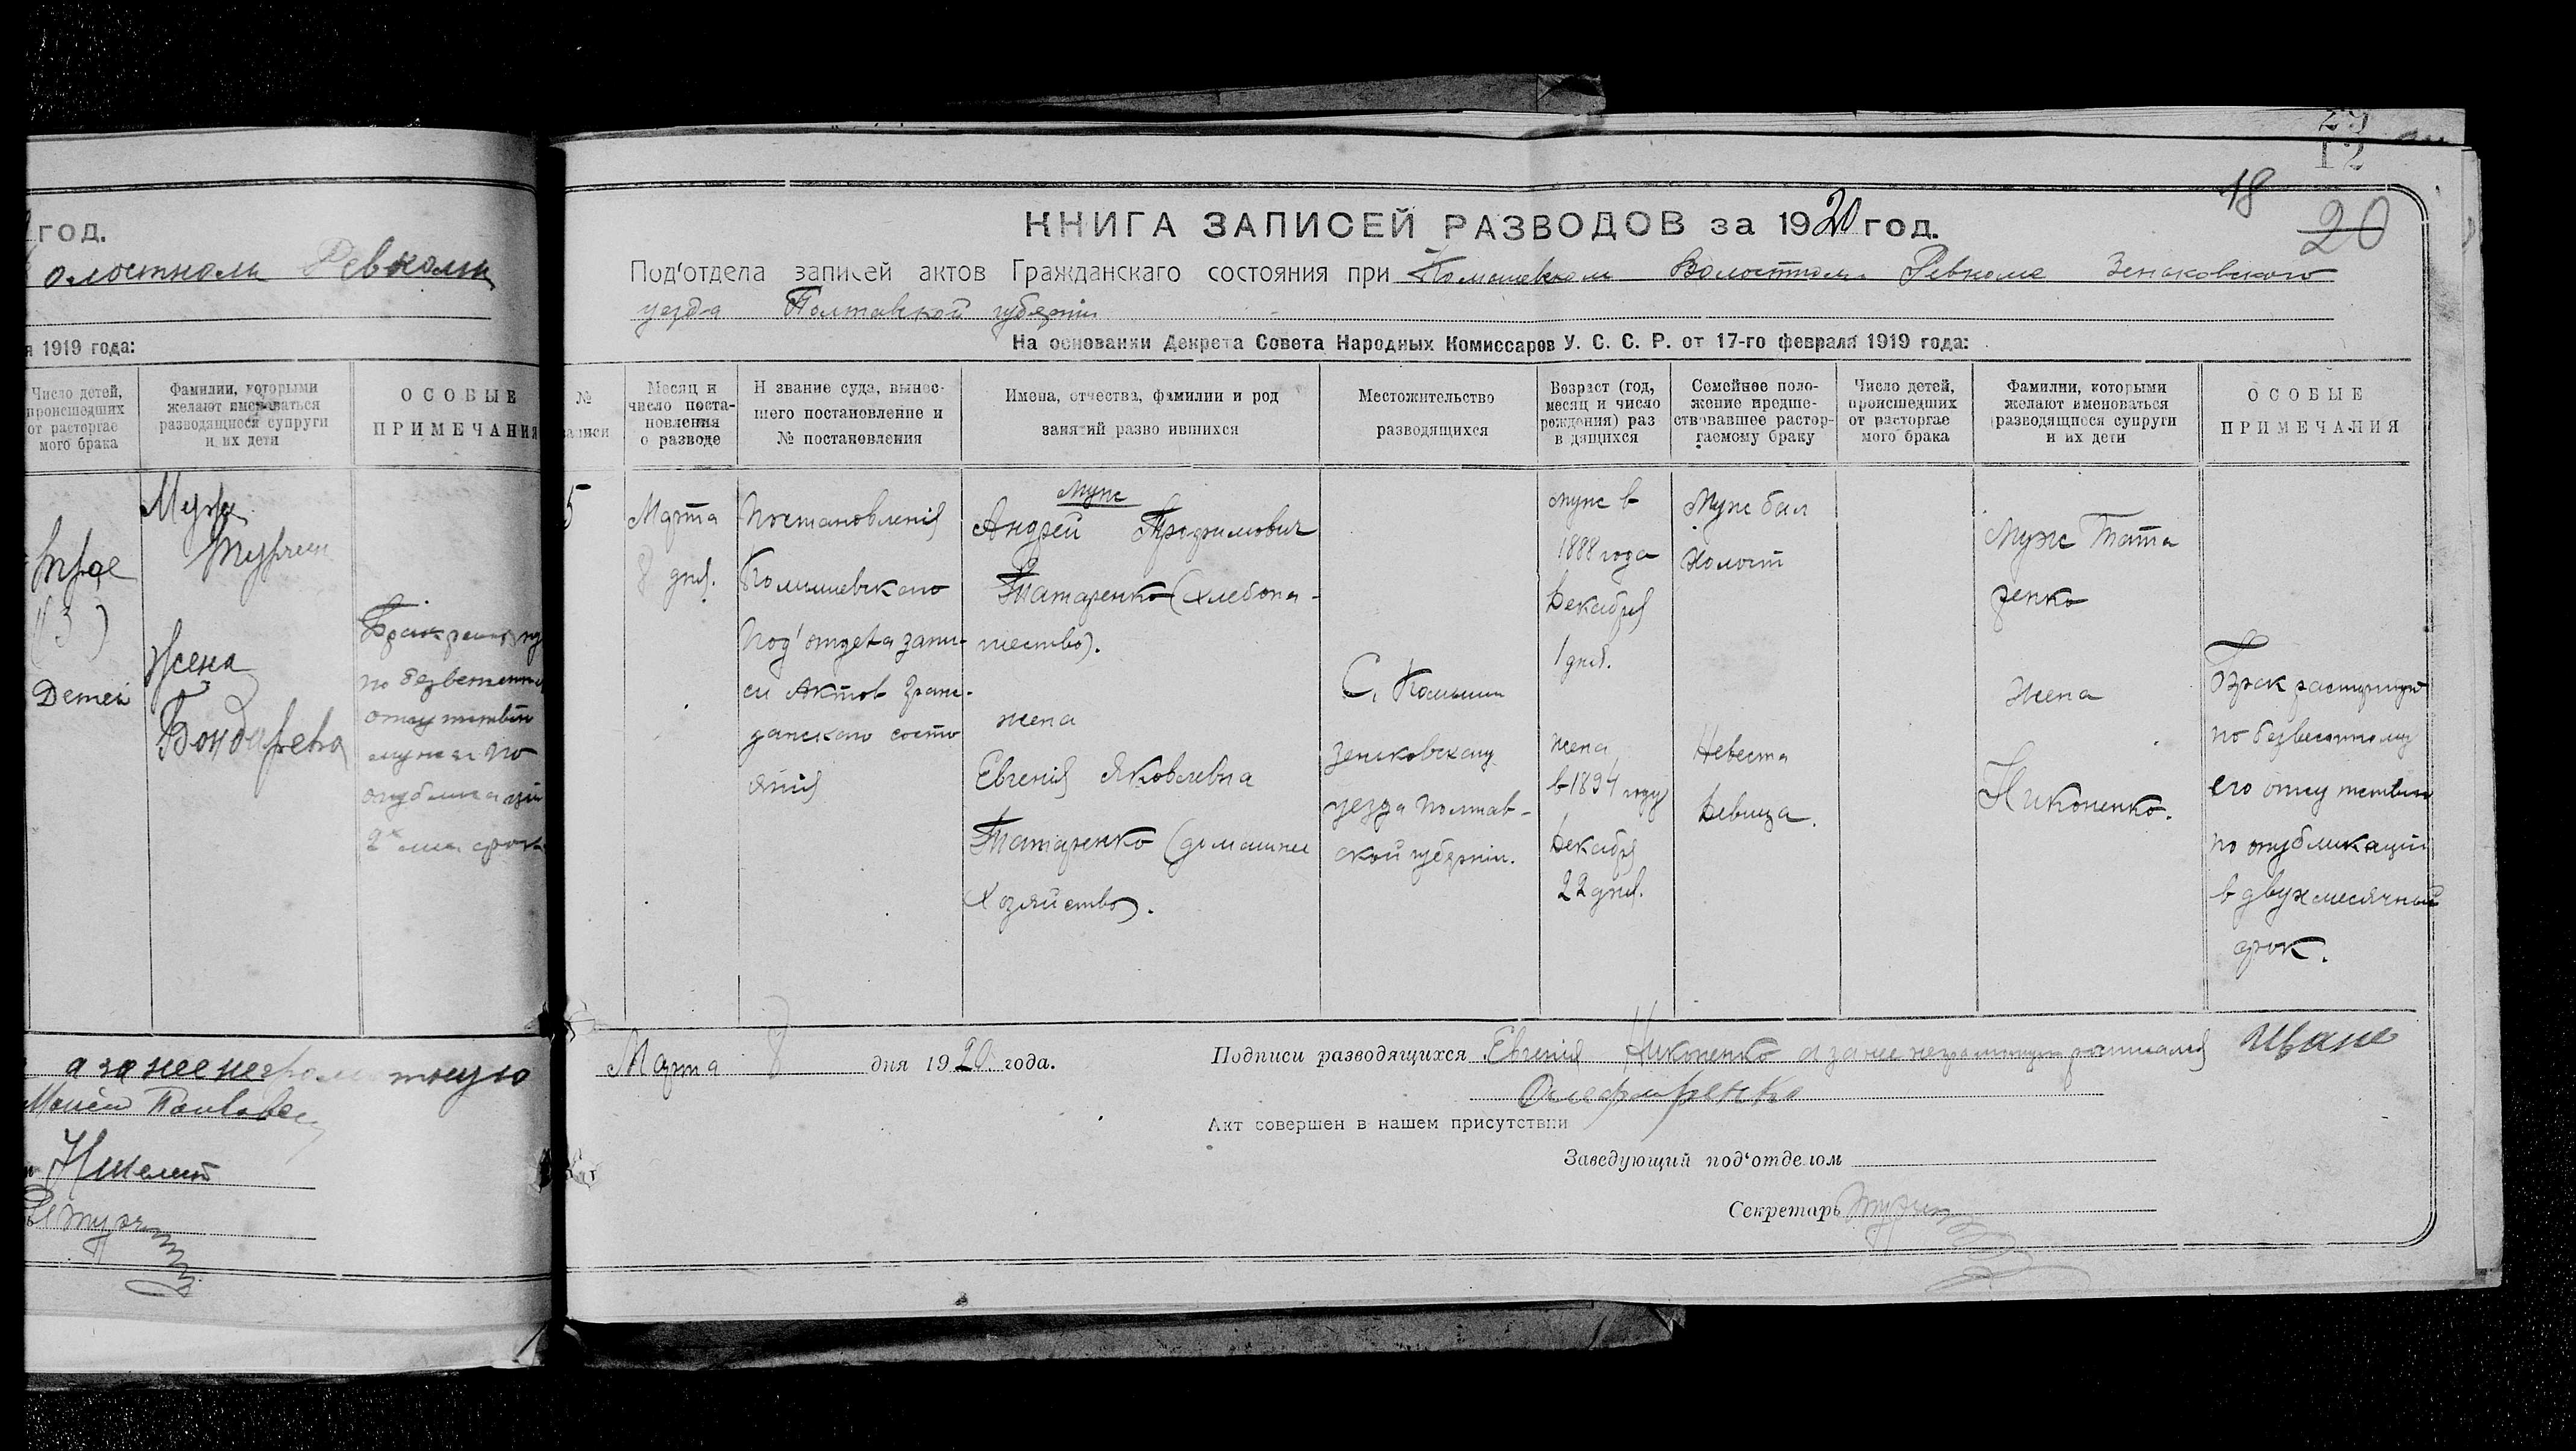 год.
олостном Ревкоми
я 1919 года:
Число детей, происшедших от расторгае мого брака
Фамилии, которыми желают именоваться разводящиеся супруги и их дети
ОСОБЫЕ ПРИМЕЧАНИЯ
Муж
Трое
(3)
Детей
Жена
Бондарева
по безвестн
отсутствию
мужа по
публикации
а за нее неграмотную
12
18
20
КНИГА ЗАПИСЕЙ РАЗВОДОВ за 1920 год.
Под'отдела записей актов Гражданскаго состояния при Комышевском Волостном Ревкоме Зеньковского
уезда Полтавской губернии
На основании Декрета Совета Народных Комиссаров У. С. С. Р. от 17-го февраля 1919 года:
№ записи
Месяц и число поста- новления о разводе
Н звание суда, вынес- шего постановление и № постановления
Имена, отчества, фамилии и род занятий разво ившихся
Местожительство разводящихся
Возраст (год, месяц и число рождения) раз в дящихся
Семейное поло- жение предше- ствовавшее растор- гаемому браку
Число детей, происшедших от расторгае мого брака
Фамилии, которыми желают именоваться разводящиеся супруги и их дети
ОСОБЫЕ ПРИМЕЧАНИЯ
5
Марта
8 дня.
Постановления
Комышевского
под'отдела запи-
си Актов Граж-
данского состо
яния
муж
Андрей Трофимович
Татаренко (хлебопа-
шество).
жена
Евгения Яковлевна
Татаренко (домашнее
хозяйство).
С. Комыши
Зеньковскаго
уезда Полтав-
ской губернии.
муж в
1888 года
Декабря
1 дня.
жена
в 1894 году
Декабря
22 дня.
Муж был
Холост
Невеста
Девица.
Муж Тата
ренко
жена
Никоненко.
Брак расторгнут
по безвестному
его отсутствию
по опубликации
в двухмесячный
срок.
Марта 8 дня 1920 года.
Подписи разводящихся Евгения Никоненко а за нее неграмотную росписался Иване
Олефиренко
Акт совершен в нашем присутствии
Заведующий под'отделом
Секретарь